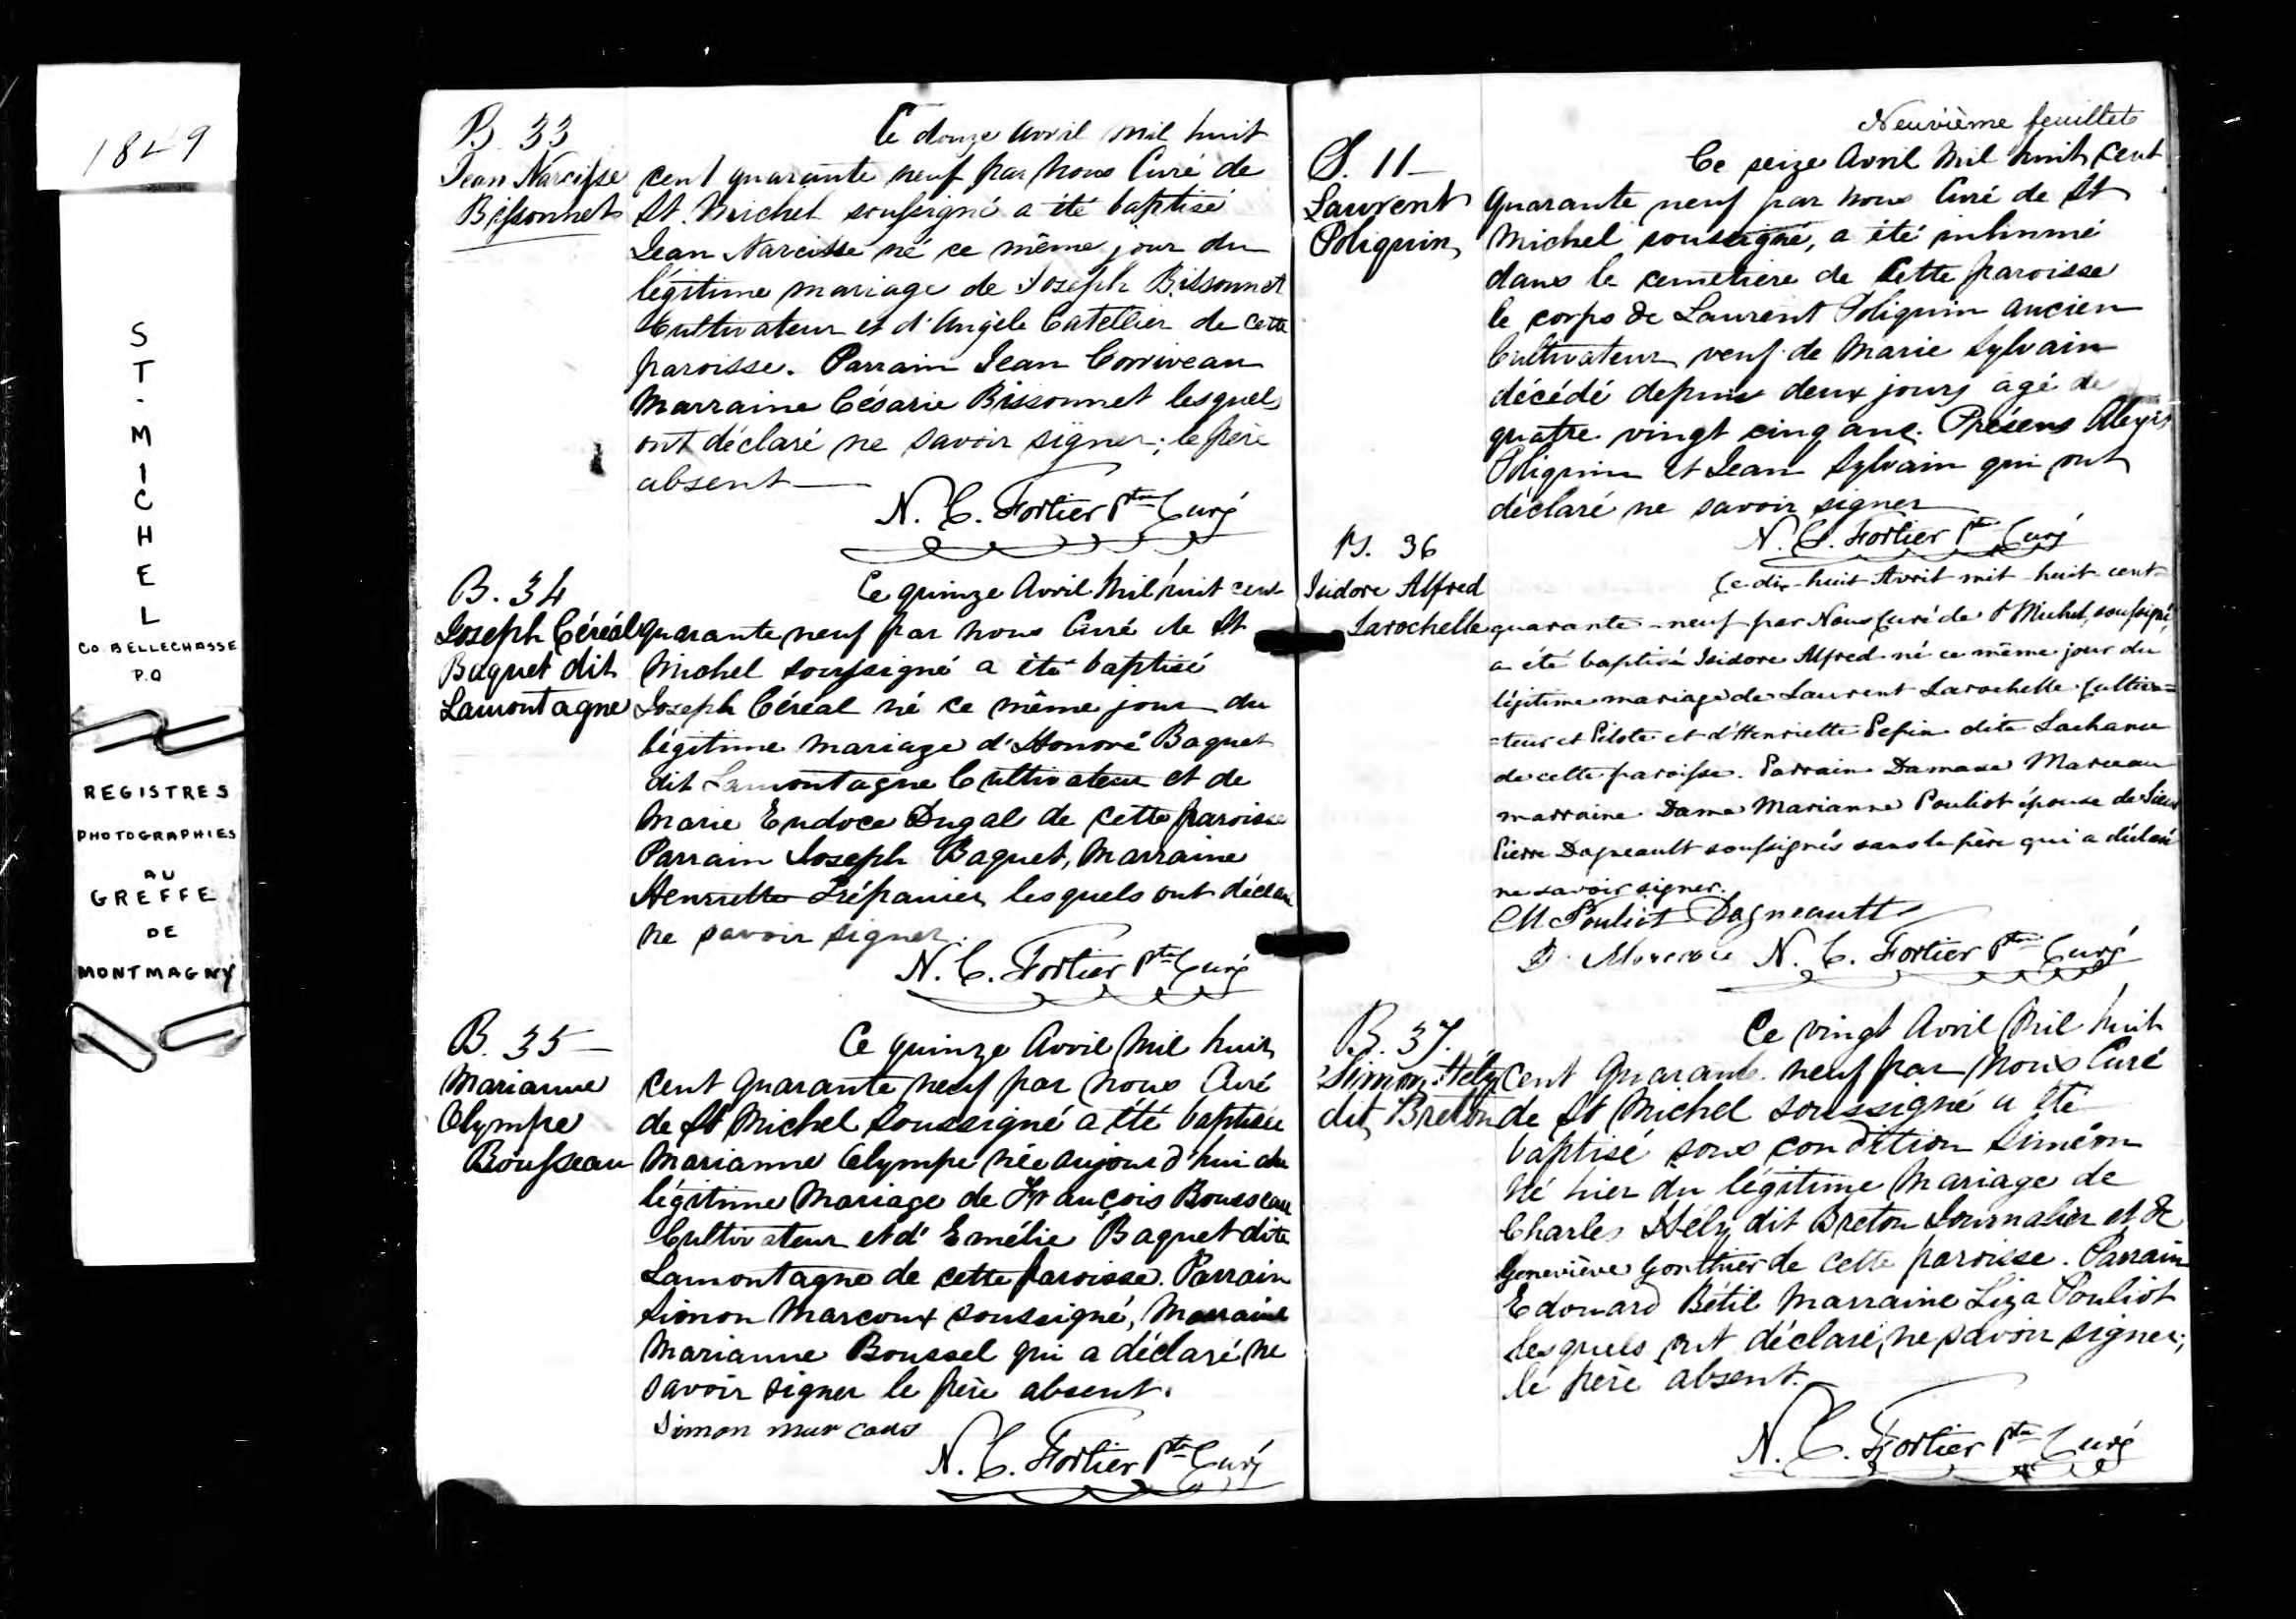 1849
ST. MICHEL
CO. BELLECHASSE
P.Q
REGISTRES
PHOTOGRAPHIES
AU
GREFFE
DE
MONTMAGNY
B. 33
Jean Narcisse
Bissonnet
Ce douze Avril mil huit
cent quarante neuf par nous Curé de
St. Michel soussigné a été baptisé
Jean Narcisse né ce même jour du
légitime mariage de Joseph Bissonnet
Cultivateur et d'Angèle Catellier de cette
paroisse. Parrain Jean Corriveau
Marraine Césarie Bissonnet lesquels
ont déclaré ne savoir signer; le père
absent
N. C. Fortier Ptre Curé
B. 34
Joseph Céréal
Baquet dit
Lamontagne
Ce quinze Avril Mil huit cent
quarante neuf par nous Curé de St
Michel soussigné a été baptisé
Joseph Céréal né ce même jour du
légitime mariage d'Honoré Baquet
dit Lamontagne Cultivateur et de
Marie Eudoce Dugal de cette paroisse
Parrain Joseph Baquet, Marraine
Henriette Trépanier lesquels ont déclaré
ne savoir signer.
N. C. Fortier Ptre Curé
B. 35
Marianne
Olympe
Bousseau
Ce quinze Avril Mil huit
cent quarante neuf par nous Curé
de St Michel soussigné a été baptisée
Marianne Olympe née aujourd'hui du
légitime Mariage de François Bousseau
Cultivateur et d'Emélie Baquet dite
Lamontagne de cette paroisse. Parrain
Simon Marcoux soussigné, Marraine
Marianne Boussel qui a déclaré ne
savoir signer le père absent.
Simon marcous
N. C. Fortier Ptre Curé
Neuvième feuillet
S. 11
Laurent
Poliquin
Ce seize Avril Mil huit cent
quarante neuf par nous Curé de St
Michel soussigné, a été inhumé
dans le cemetière de cette paroisse
le corps de Laurent Poliquin ancien
Cultivateur veuf de Marie Sylvain
décédé depuis deux jours agé de
quatre vingt cinq ans. Présens Alexis
Poliquin et Jean Sylvain qui ont
déclaré ne savoir signer
N. C. Fortier Ptre Curé
B. 36
Isidore Alfred
Larochelle
Ce dix-huit Avril mil-huit-cent-
quarante-neuf par Nous Curé de St Michel, soussigné,
a été baptisé Isidore Alfred né ce même jour du
légitime mariage de Laurent Larochelle Cultiva=
=teur et Pilote et d'Henriette Pepin dite Lachance
de cette paroisse. Parrain Damase Marceau
marraine Dame Marianne Pouliot épouse de Sieur
Pierre Dagneault soussignés sans le père qui a déclaré
ne savoir signer.
M Pouliot Dagneault
D. Marceau N. C. Fortier Ptre Curé
B. 37.
Siméon Hély
dit Breton
Ce vingt Avril Mil huit
cent quarante neuf par nous Curé
de St Michel soussigné a été
baptisé sous condition Siméon
né hier du légitime mariage de
Charles Hély dit Breton Journalier et de
Geneviève Gonthier de cette paroisse. Parrain
Edouard Bétil Marraine Liza Pouliot
lesquels ont déclaré ne savoir signer;
le père absent.
N. C. Fortier Ptre Curé